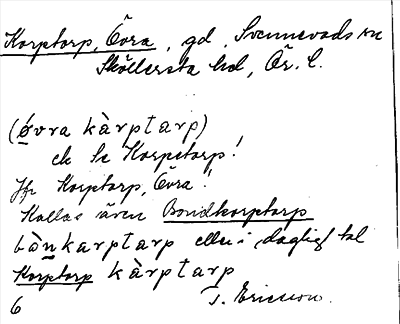 Korptorp, Övra, gd, Svennevads sn
Sköllersta hd, Ör. l.
(ø̀vra kàrptarp)
ek le Korpetorp!
Jfr Korptorp, Övra!
Kallas även Bondkorptorp
bònkarptarp eller i dagligt tal
Korptorp kàrptarp
6 T. Ericsson.